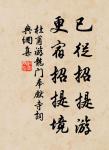 已從招提游
更宿招提境
杜甫游龍門奉先寺詞
興綢集